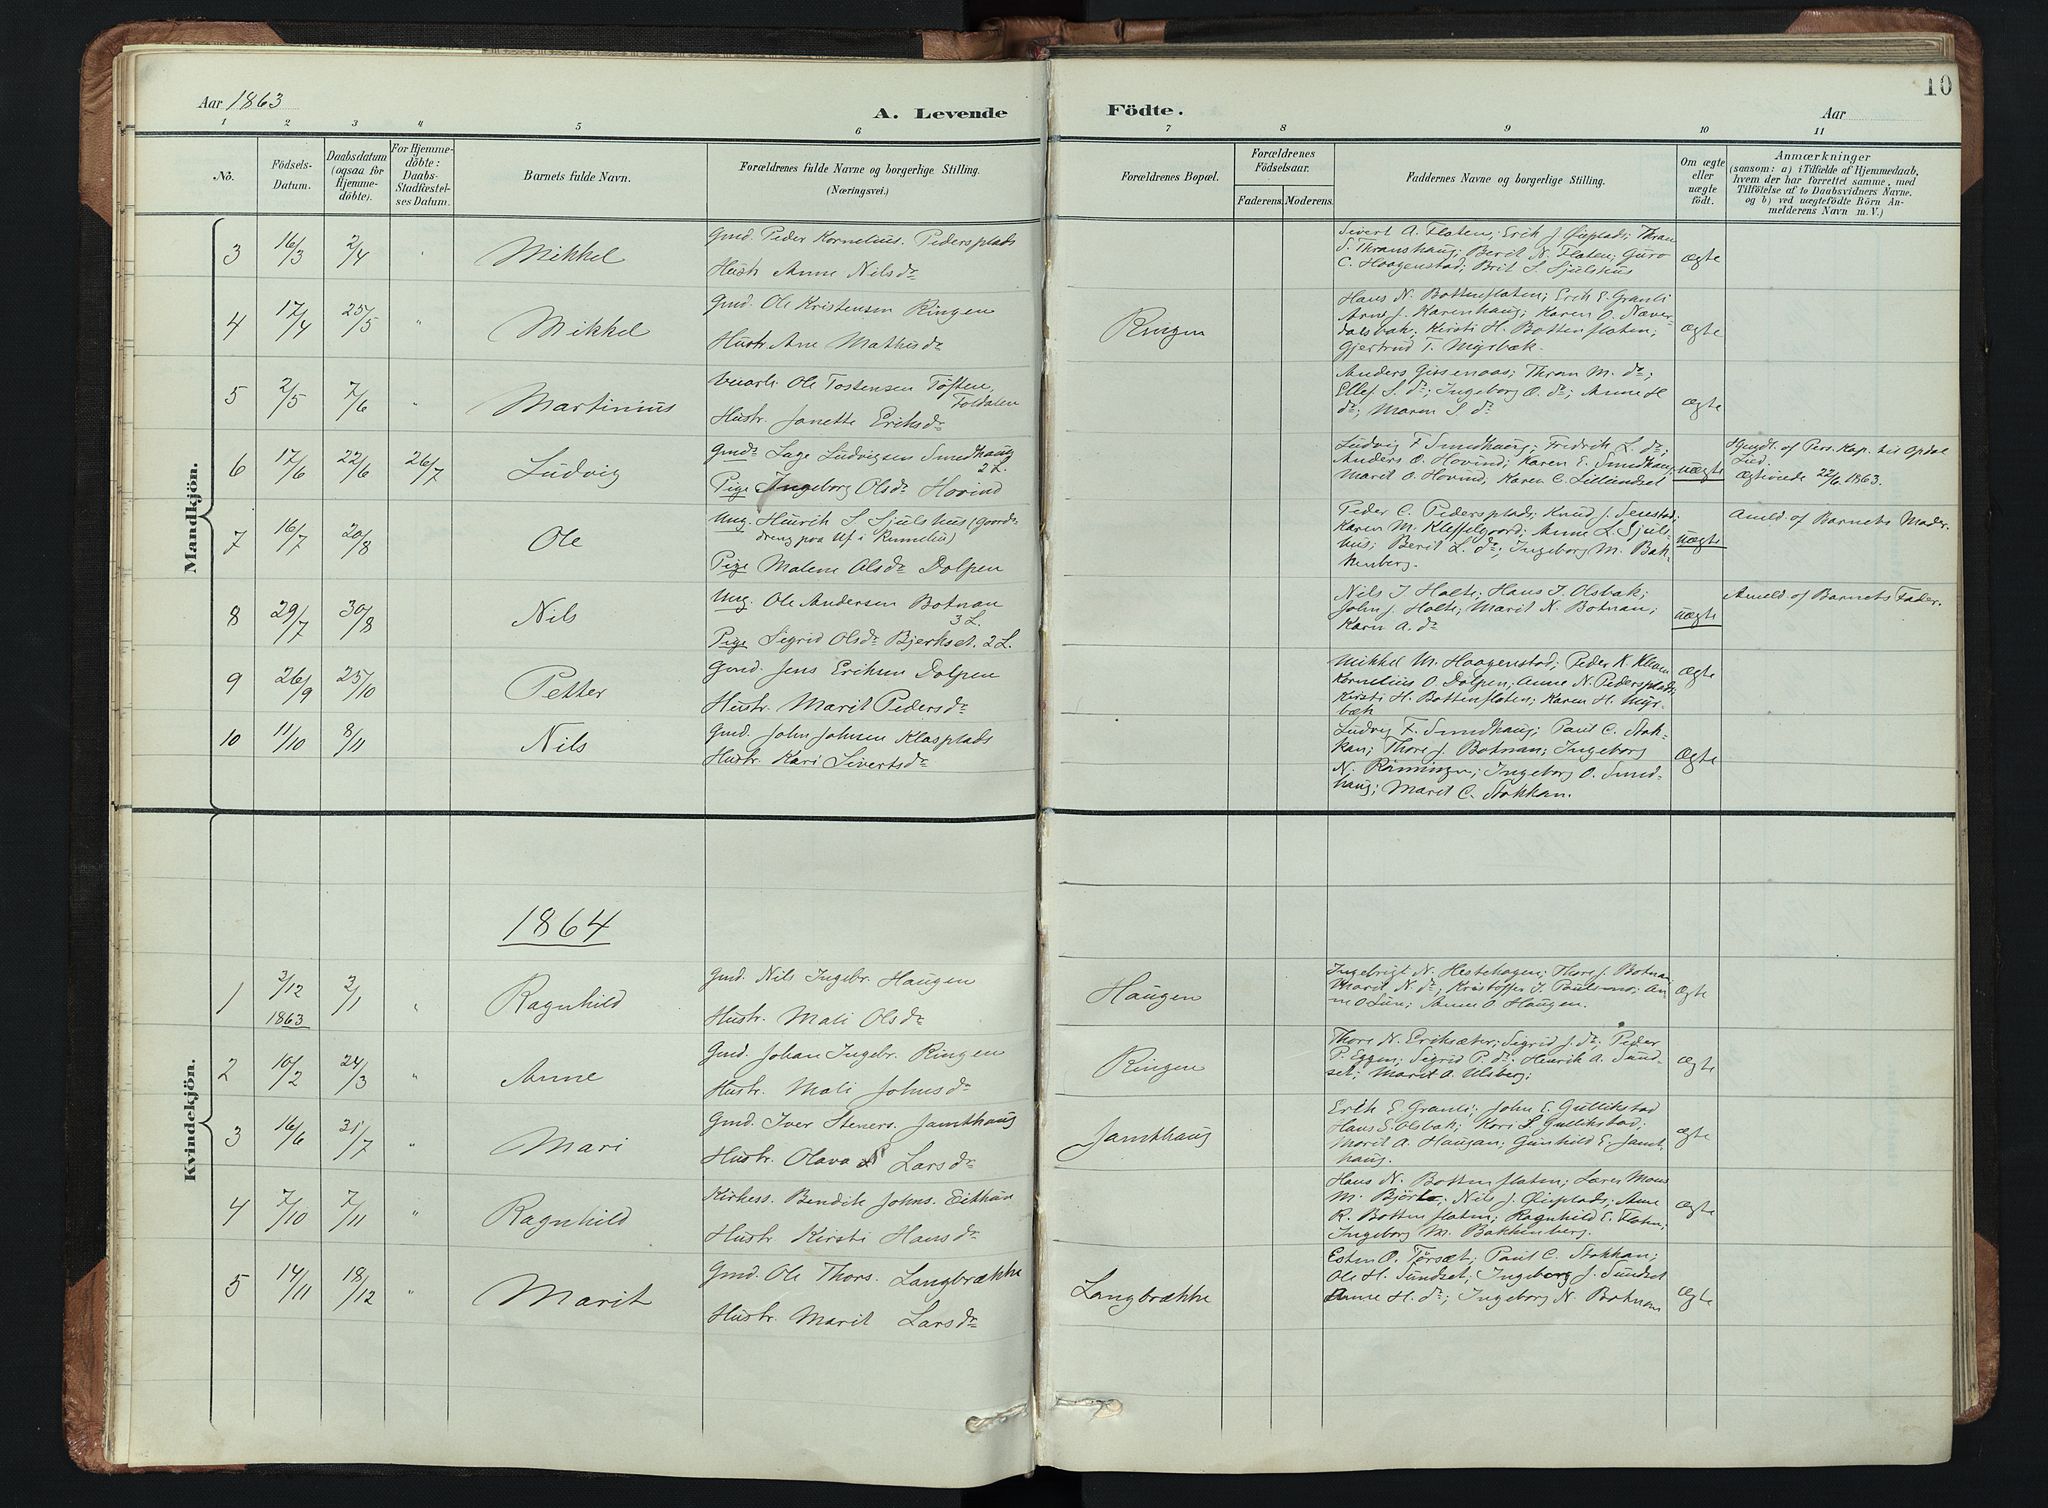 Aar 1863
A. Levende
Födte.
Aar
10
1 2 3 4 5 6 7 8 9 10 11
No.
Födsels-
Datum.
Daabsdatum
(ogsaa for
Hjemme-
döbte).
For Hjemme-
döbte:
Daabs-
Stadfæstel-
ses Datum.
Barnets fulde Navn.
Forældrenes fulde Navne og borgerlige Stilling.
(Næringsvei.)
Forældrenes Bopæl.
Forældrenes
Födselsaar.
Faderens. Moderens.
Faddernes Navne og borgerlige Stilling.
Om ægte
eller
uægte
födt.
Anmærkninger
(saasom: a) i Tilfælde af Hjemmedaab,
hvem der har forrettet samme, med
Tilföielse af to Daabsvidners Navne.
og b) ved uægtefödte Börn An-
melderens Navn m. V.)
Mandkjön.
3 16/3 2/4 " Mikkel
Gmd. Peder Kornelius. Pedersplads
Hustr Anne Nilsdr
Sivert A. Floten; Erik J. Øiuplads; Thran
S. Thranshaug; Berit N. Floten; Guro
C. Haagenstad; Brit S. Sjulshus
ægte
4 17/4 25/5 " Mikkel
Gmd. Ole Kristensen Ringen
Hustr. Ane Mathisdr
Ringen
Hans N. Bottenfloten; Erik E. Granli
Arne J. Karenhaug; Karen O. Næver-
dalsbak. Kirsti H. Bottenfloten;
Gjertrud T. Myrbæk.
ægte
5 2/5 7/6 " Martinius
Ole Tostensen Töften,
Foldalen
Hustr. Janette Eriksdr
Anders Gissenaas; Thran M. dr;
Ellef S. dr; Ingeborg O. dr; Anne H
dr; Maren S. dr
ægte
6 17/6 22/6 26/7 Ludvig
Gmdr Lage Ludvigsen Smedhaug
2 L.
Pige Ingeborg Olsdr Hovind
Ludvig F Smedhaug; Fredrik L. dr;
Anders O. Hovind; Karen E. Smedhaug
Marit O. Hovind; Karen C. Lillundset
uægte
Hjmdt. af Pers. Kap. til Opdal
Lied.
Ægteviede 22/6 1863.
7 16/7 20/8 Ole
Ung. Henrik S. Sjulshus (Goords-
dreng paa Uf i Rennebu)
Pige Malene Olsdr Dolpen
Peder C. Pedersplads; Knud J. Jerestad;
Karen M. Kleffelgoord; Anne L. Sjuls-
hus; Berit L. dr; Ingeborg M. Bak-
kenberg.
uægte
Anmld. af Barnets Moder.
8 29/7 30/8 Nils
Ung. Ole Andersen Botnan
3 L.
Pige Sigrid Olsdr Bjerkset. 2 L.
Nils J Holte; Hans J. Olsbak;
John J. Holte; Marit N. Botnan;
Karn A. dr
uægte
Anmeld. af Barnets Fader.
9 26/9 25/10 Petter
Gmd. Jens Eriksen Dolpen
Hustr. Marit Pedersdr
Mikkel M. Haagenstad; Peder K.
Kornelius O. Dolpen, Anne N. Pedersplads
Kirsti H. Bottenfloten; Karen H. Myr-
bæk
ægte
10 11/10 8/11 Nils
Gmd. John Johnsen Klasplads
Hustr. Kari Sivertsdr
Ludvig F. Smedhaug; Paul C. Stok-
kan; Thore J. Botnan; Ingeborg
N. Rönningen; Ingeborg O. Smed-
haug; Marit C. Stokkan.
ægte
1864
Kvindekjön.
1 3/12 1863 3/1 " Ragnhild
Gmd. Nils Ingebr. Haugen
Hustr. Mali Olsdr
Haugen
Ingebrigt N. Hestehagen; Thore J. Botnan
Marit N. dr; Kristoffer J. Paulsmo; An-
ne O Lun; Anne O Haugen.
ægte
2 10/2 24/3 " Anne
Gmd. Johan Ingebr. Ringen
Hustr. Mali Johnsdr
Ringen
Thore N. Eriksæter; Sigrid J. dr; Peder
P. Eggen; Sigrid P. dr. Henrik A. Sund-
set; Marit O. Ulsberg;
ægte
3 16/6 31/7 " Mari
Gmd. Iver Steners. Jamthaug
Hustr. Olava Larsdr
Jamthaug
Erik E. Granli; John E. Gullikstad
Hans E. Olsbak; Kari S Gullikstad;
Marit A. Haugan; Gunhild E. Jamt-
haug.
ægte
4 7/10 7/11 " Ragnhild
Kirkess. Bendik Johns. Eithun
Hustr Kirsti Hansdr
Hans N. Bottenfloten; Lars Mons
M. Björlo; Nils J. Øiuplads; Anne
R. Bottenfloten; Ragnhild E. Floten;
Ingeborg M. Bakkenberg.
ægte
5 14/11 18/12 " Marit
Gmd. Ole Thors. Langbrække
Hustr. Marit Larsdr
Langbrække
Esten O. Törsæt; Paul C. Stokkan;
Ole H. Sundset; Ingeborg J. Sundset
Anne H. dr; Ingeborg N. Botnan
ægte